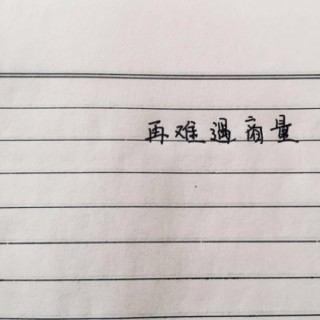 再难遇商量